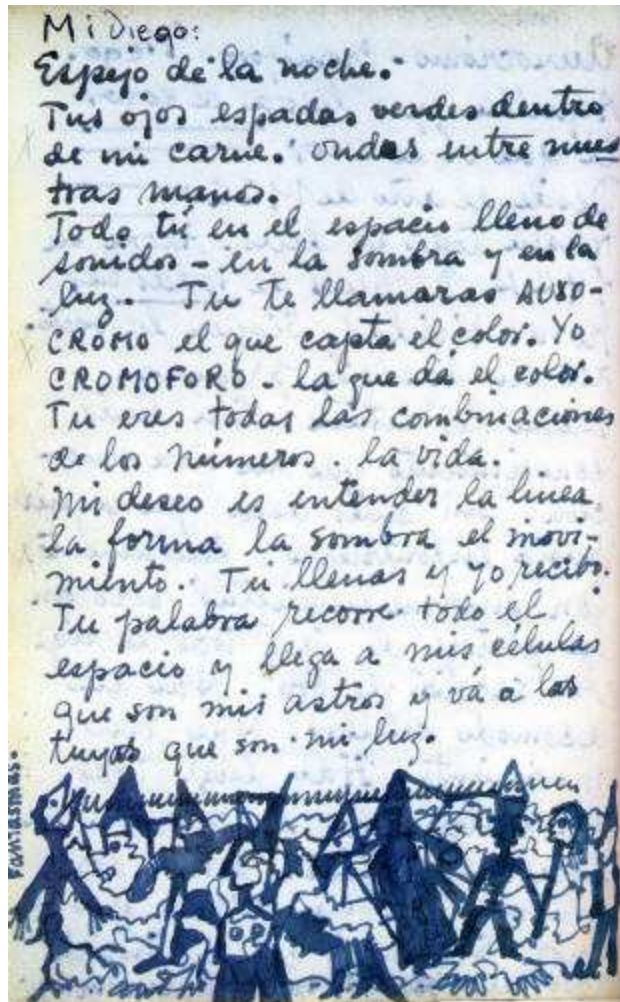 Mi Diego:
Espejo de la noche.
Tus ojos espadas verdes dentro
de mi carne. ondas entre nues
tras manos.
Todo tú en el espacio lleno de
sonidos - en la sombra y en la
luz. Tu te llamaras AUXO-
CROMO el que capta el color. Yo
CROMOFORO - la que dá el color.
Tu eres todas las combinaciones
de los números. la vida.
mi deseo es entender la linea
la forma la sombra el movi-
miento. Tu llenas y yo recibo.
Tu palabra recorre todo el
espacio y llega a mis células
que son mis astros y vá a las
tuyas que son mi luz.
fantasmas.